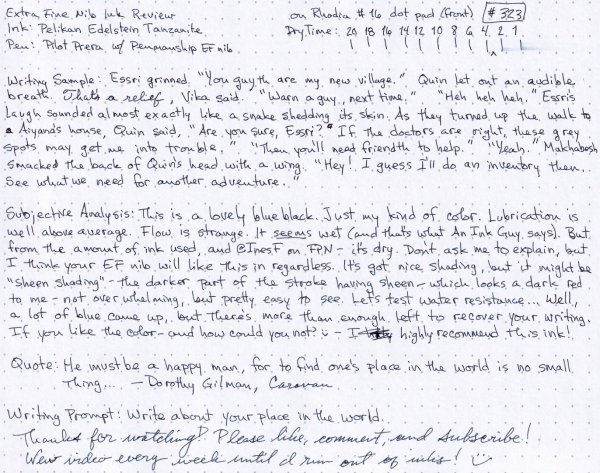 Extra Fine Nib Ink Review on Rhodia #16 dot pad (front) #323
Ink: Pelikan Edelstein Tanzanite Dry Time: 20 18 16 14 12 10 8 6 4 2 1
Pen: Pilot Prera w/ Penmanship EF nib
Writing Sample: Essri grinned. "You guyth are my new village." Quin let out an audible
breath. That's a relief, Vika said. "Warn a guy, next time." "Heh heh heh." Essri's
laugh sounded almost exactly like a snake shedding its skin. As they turned up the walk to
Aiyana's house, Quin said, "Are you sure, Essri?" "If the doctors are right, these grey
spots may get me into trouble." "Then you'll need friendth to help." "Yeah." Makhabesh
smacked the back of Quin's head with a wing. "Hey! I guess I'll do an inventory then.
See what we need for another adventure."
Subjective Analysis: This is a lovely blue black. Just my kind of color. Lubrication is
well above average. Flow is strange. It seems wet (and that's what An Ink Guy says). But
from the amount of ink used, and @InesF on FPN - it's dry. Don't ask me to explain, but
I think your EF nib will like this in regardless. It's got nice shading, but it might be
"sheen shading" - the darker part of the stroke having sheen - which looks a dark red
to me - not overwhalming, but pretty easy to see. Let's test water resistance... Well,
a lot of blue came up, but there's more than enough left to recover your writing.
If you like the color - and how could you not? :) - I highly recommend this ink!
Quote: He must be a happy man, for to find one's place in the world is no small
thing.... - Dorothy Gilman, Caravan
Writing Prompt: Write about your place in the world.
Thanks for watching! Please like, comment, and subscribe!
New video every week until I run out of inks! :)